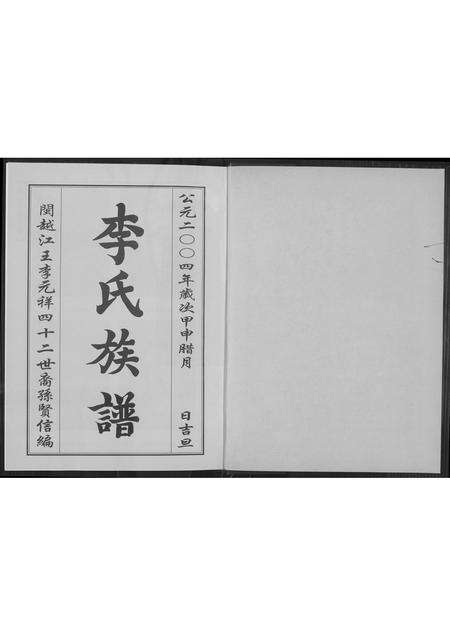 公元二〇〇四年歲次甲申腊月 日吉旦
李氏族譜
閩越江王李元祥四十二世裔孫賢信編